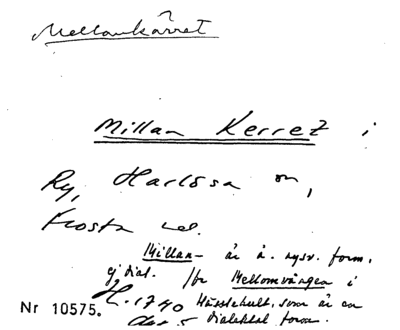 Mellankärret
Millan Kerret i
Ry, Harlösa sn,
Frosta
Millan- är ä. nysv. form,
ej dial. Mellomvången i
H. 1740 Hässlehult, som är en
Nr 10575. dialektal form.